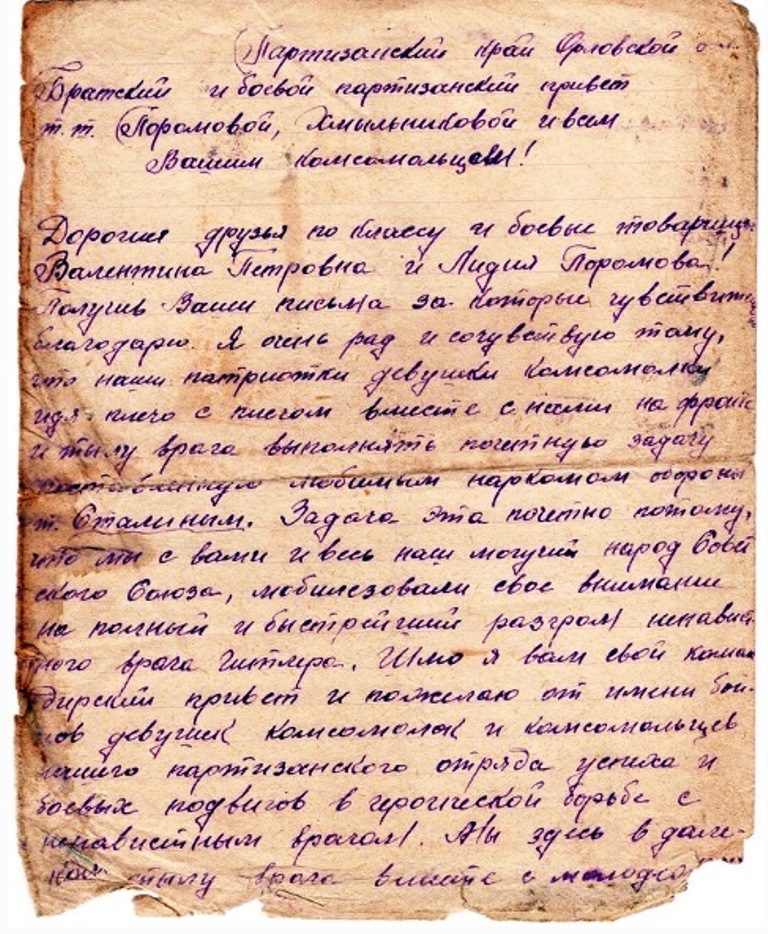 Партизанский край Орловской о
Братский и боевой партизанский привет
т.т. Поромовой, Хмыльниковой и всем
Вашим комсомольцам!
Дорогия друзья по классу и боевые товарищи
Валентина Петровна и Лидия Поромова!
Получив Ваши письма за которые чувствит
благодарю. Я очень рад и сочувствую тому,
что наши патриотки девушки комсомолки
идя плечо с плечом вместе с нами на фронте
и тылу врага выполнять почетную задачу
поставленную любимым наркомом обороны
т. Сталиным. Задача эта почетно потому,
что мы с вами и весь наш могучий народ Совет
ского Союза, мобилезовали свое внимание
на полный и быстрейший разгром ненавист
ного врага Гитлера. Шлю я вам свой коман
дирский привет и пожелаю от имени бой-
цов девушек комсомолок и комсомольцев
нашего партизанского отряда успеха и
боевых подвигов в героической борьбе с
ненавистным врагом. Мы здесь в дале-
ком тылу врага вместе с молодо